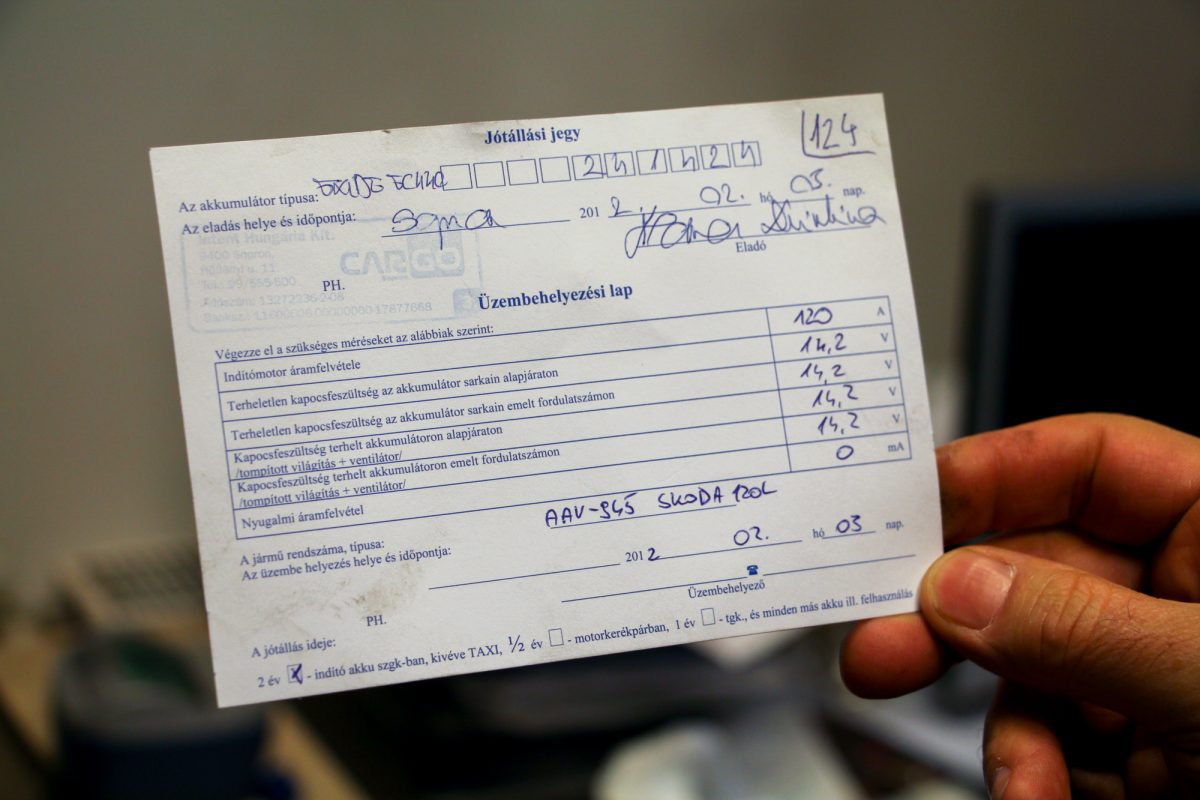 Jótállási jegy
124
Az akkumulátor típusa: EXIDE EC440 241424
Az eladás helye és időpontja: Sopron 2012. 02. hó 03. nap.
Eladó
Intent Hungária Kft.
9400 Sopron,
Tel.: 99/555-600
CARGO
PH.
Üzembehelyezési lap
Végezze el a szükséges méréseket az alábbiak szerint:
Indítómotor áramfelvétele 120 A
Terheletlen kapocsfeszültség az akkumulátor sarkain alapjáraton 14,2 V
Terheletlen kapocsfeszültség az akkumulátor sarkain emelt fordulatszámon 14,2 V
Kapocsfeszültség terhelt akkumulátoron alapjáraton 14,2 V
/tompított világítás + ventilátor/
Kapocsfeszültség terhelt akkumulátoron emelt fordulatszámon 14,2 V
/tompított világítás + ventilátor/
Nyugalmi áramfelvétel 0 mA
A jármű rendszáma, típusa: AAV-945 SKODA 120L
Az üzembe helyezés helye és időpontja: 2012 02. hó 03 nap.
Üzembehelyező
PH.
A jótállás ideje:
2 év X - indító akku szgk-ban, kivéve TAXI, 1/2 év - motorkerékpárban, 1 év - tgk., és minden más akku ill. felhasználás